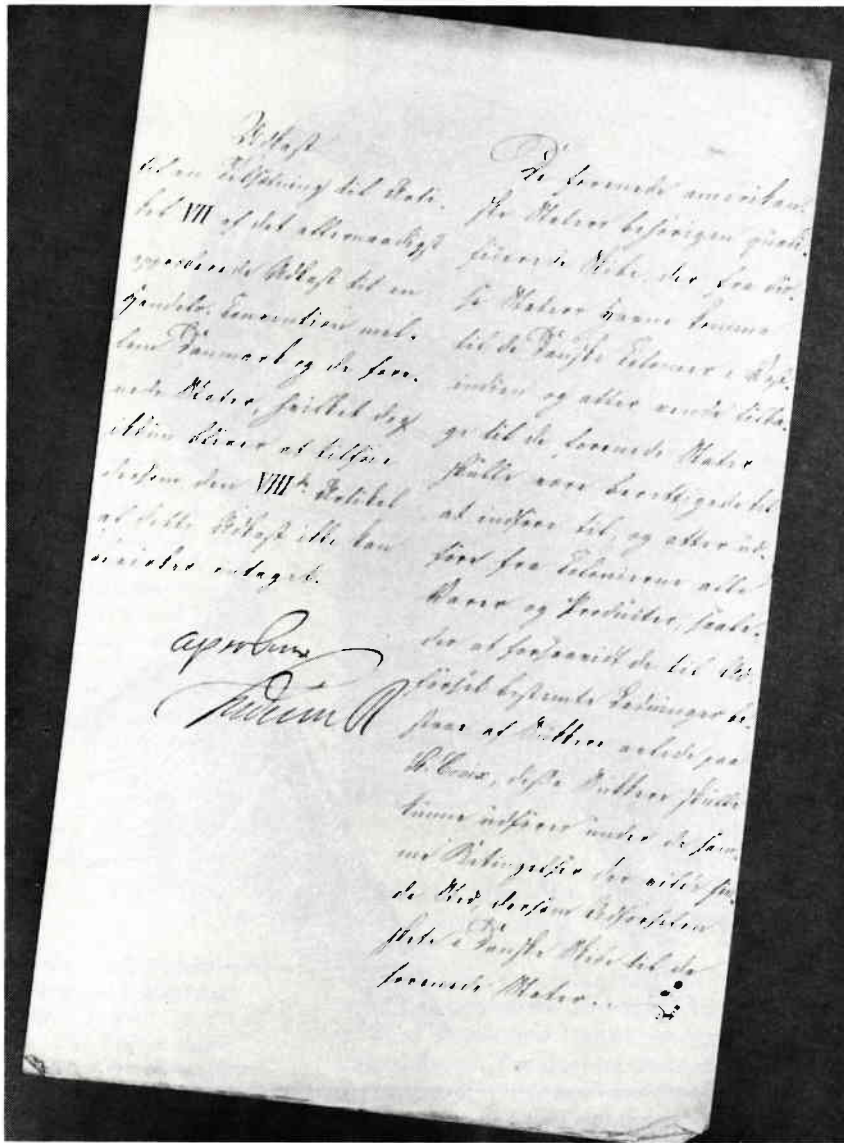 Udkast
til en Tilføining til Arti-
kel VII af det allernaadigst
approberede Udkast til en
Handels-Convention mel-
lem Danmark og de fore-
nede Stater, hvilket dog
ikkun bliver at tilføie
dersom den VIIIde Artikel
af dette Udkast ikke kan
vorde antaget.
approberes
Friderich R
De forenede amerikan-
ske Staters behörigen qvali-
ficerede Skibe, der fra dis-
se Staters Havne komme
til de Danske Colonier i Vest-
indien og atter vende tilba-
ge til de forenede Stater
skulle være berettigede til
at indføre til, og atter ud-
føre fra Colonierne alle
Varer og Producter, saale-
des at forsaavidt de til Ud-
førsel bestemte Ladninger be-
staae af Sukkere avlede paa
St. Croix, disse Sukkere skulle
kunne udføres under de sam-
me Betingelser
de Sted dersom Udførselen
skete i Danske Skibe til de
forenede Stater.